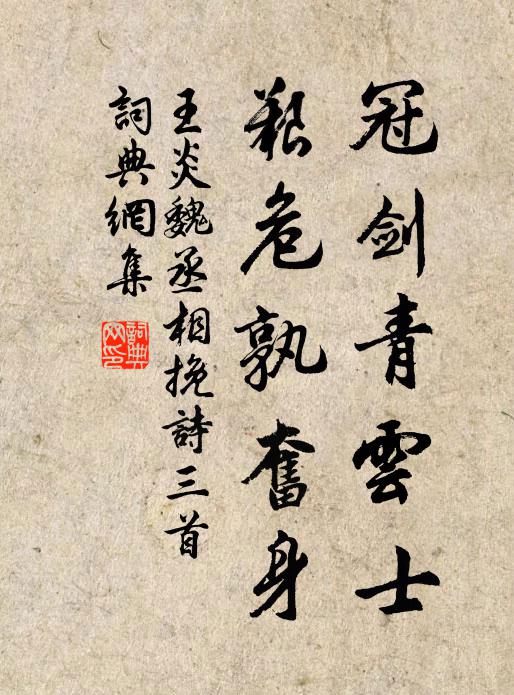 冠剑青雲士
艱危孰奮身
王炎魏丞相挽詩三首
詞典網集
詞典網印